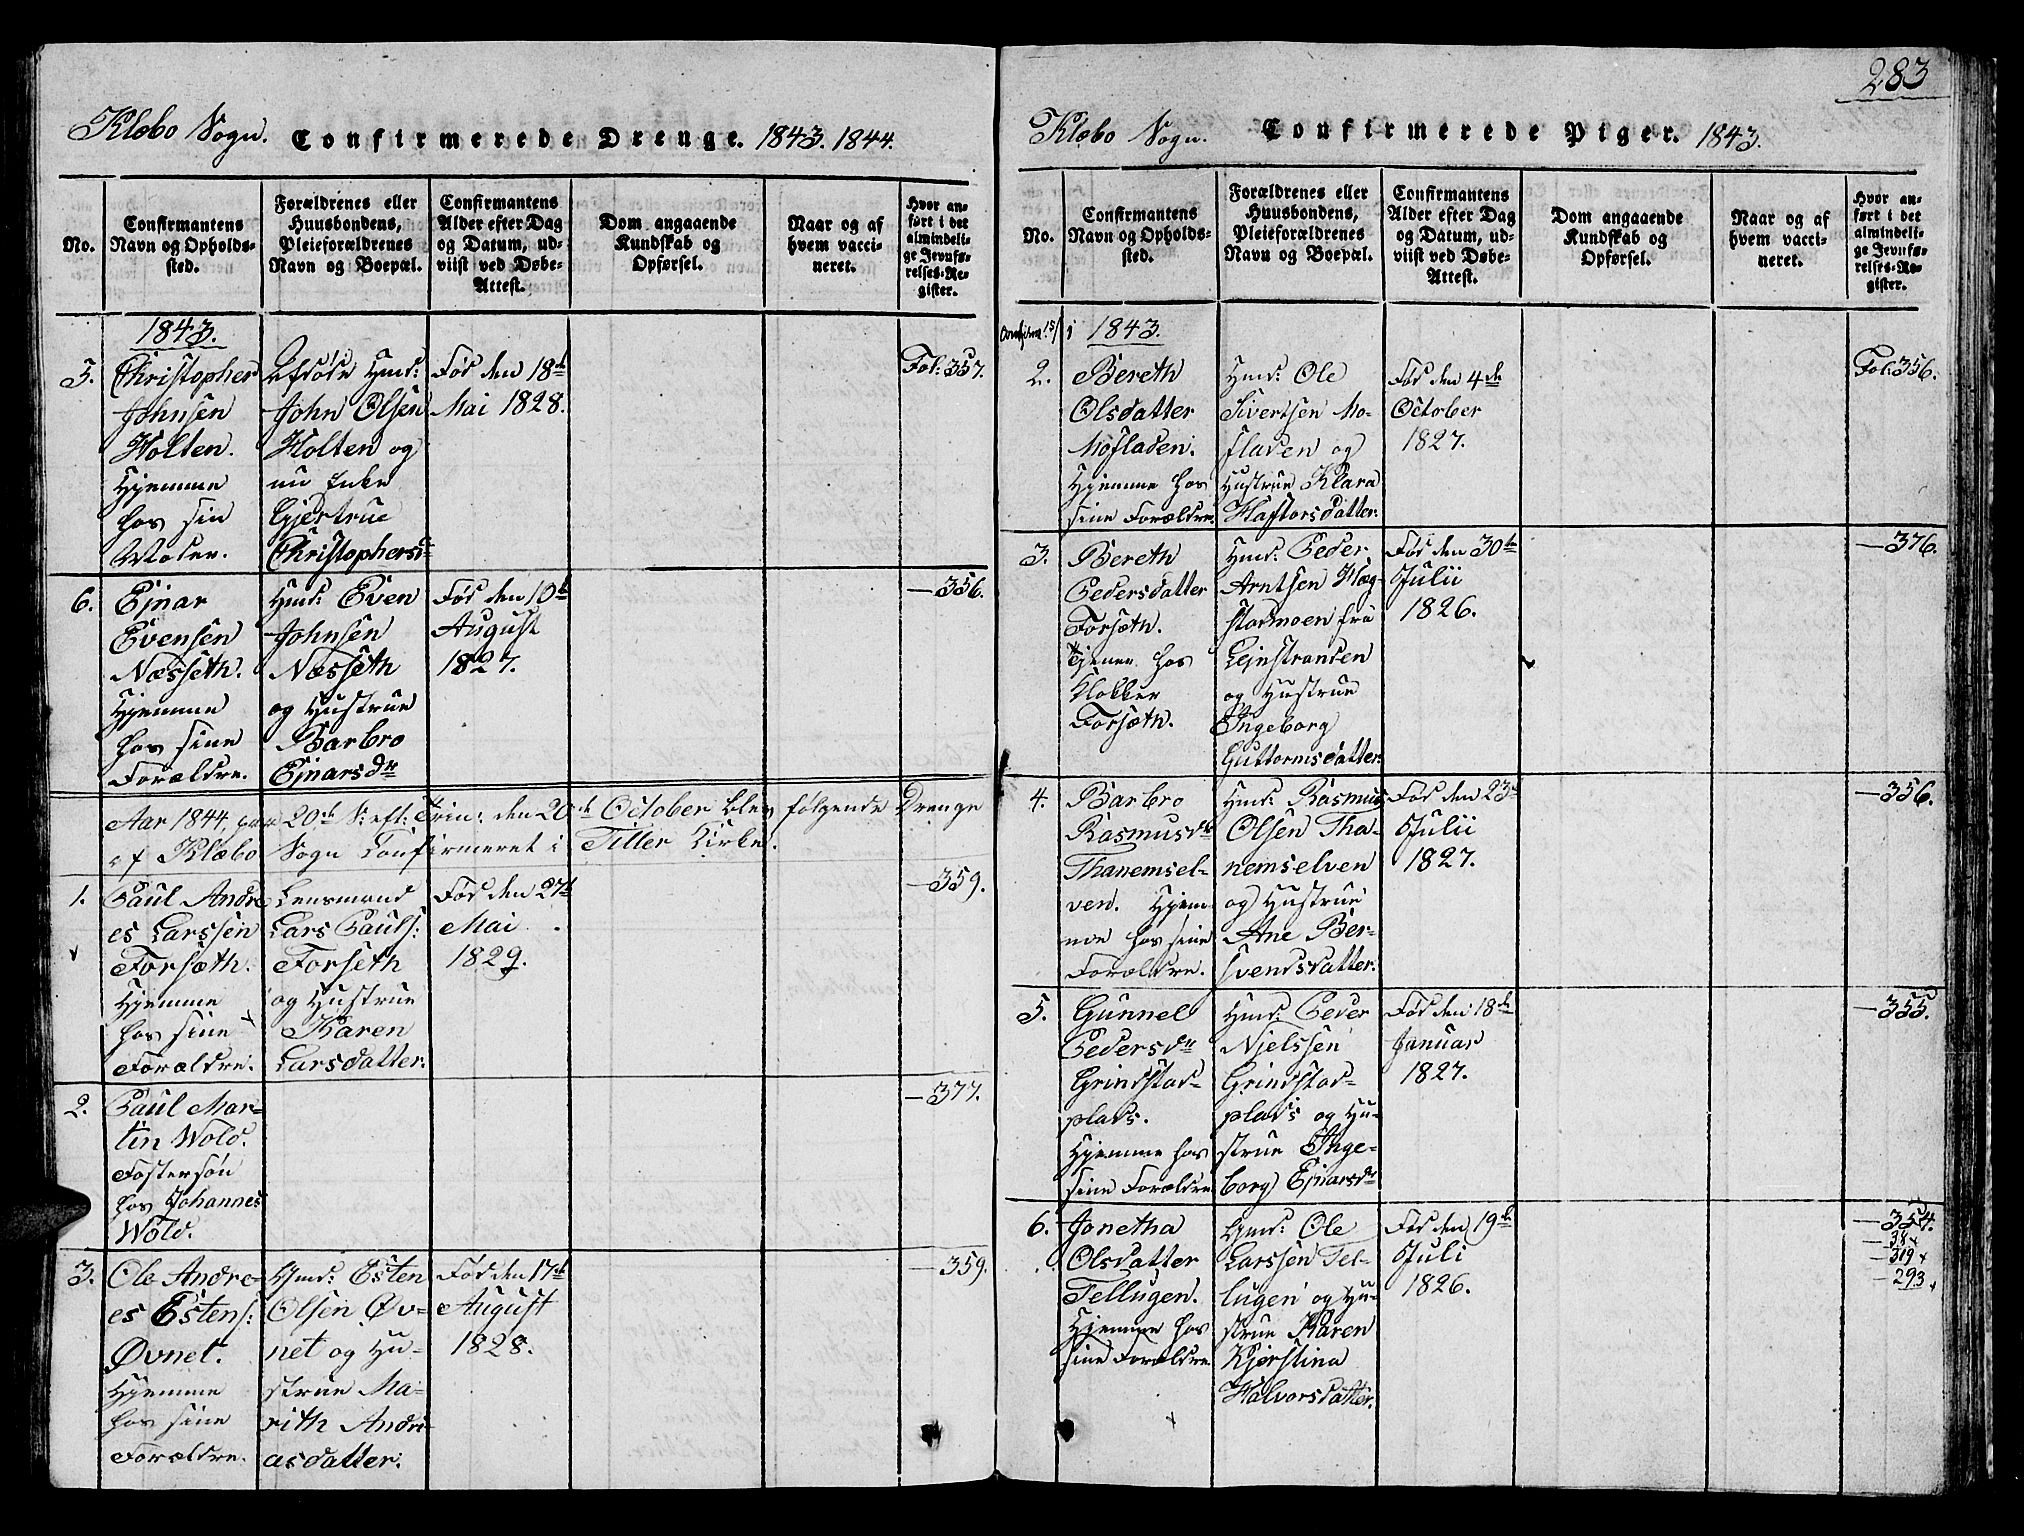 Klæbo Sogn. Confirmerede Drenge. 1843. 1844.
No.
Confirmantens
Navn og Opholds-
sted.
Forældrenes eller
Huusbondens,
Pleieforældrenes
Navn og Boepæl.
Confirmantens
Alder efter Dag
og Datum, ud-
viist ved Døbe-
Attest.
Dom angaaende
Kundskab og
Opførsel.
Naar og af
hvem vacci-
neret.
Hvor an-
ført i det
almindeli-
ge Jevnfø-
relses-Re-
gister.
1843.
5.
Christopher
Johnsen
Holten.
Hjemme
hos sin
Moder.
Afdøde Gmd:
John Olsen
Holten og
nu Enke
Gjertrue
Christophersd
Fød den 18de
Mai 1828.
Fol: 357.
6.
Ejnar
Evensen
Næsseth.
Hjemme
hos sine
Forældre.
Hmd: Even
Johnsen
Næsseth
og Hustrue
Barbro
Ejnarsdr
Fød den 10de
August
1827.
—356.
Aar 1844, paa 20de S: eft: Trin: den 20de October blev følgende Drenge
af Klæbo Sogn Confirmeret i Tiller Kirke.
1.
Paul Andre
es Larssen
Forsæth.
Hjemme
hos sine
Forældre.
Lensmand
Lars Pauls:
Forseth
og Hustrue
Karen
Larsdatter.
Fød den 27de
Mai
1829.
—359.
2.
Paul Mar-
tin Wold.
Fostersøn
hos Johannes
Wold.
—377.
3.
Ole Andre-
es Estens:
Øvnet.
Hjemme
hos sine
Forældre.
Gmd: Esten
Olsen Øv-
net og Hu-
strue Ma-
rith Andre
asdatter.
Fød den 17de
August
1828.
—359.
283
Klæbo Sogn. Confirmerede Piger. 1843.
No.
Confirmantens
Navn og Opholds-
sted.
Forældrenes eller
Huusbondens,
Pleieforældrenes
Navn og Boepæl.
Confirmantens
Alder efter Dag
og Datum, ud-
viist ved Døbe-
Attest.
Dom angaaende
Kundskab og
Opførsel.
Naar og af
hvem vacci-
neret.
Hvor an-
ført i det
almindeli-
ge Jevnfø-
relses-Re-
gister.
1843.
2.
Bereth
Olsdatter
Mosladen.
Hjemme hos
sine Forældre.
Hmd: Ole
Sivertsen Mo-
sladen og
Hustrue Klara
Haftorsdatter.
Fød den 4de
October
1827.
Fol: 356.
3.
Bereth
Pedersdatter
Forsæth.
Tjener hos
Klokker
Forsæth.
Hmd: Peder
Arntsen Hæg-
stadmoen fra
Lejnstranden
og Hustrue
Ingeborg
Guttormsdatter.
Fød den 30te
Julii
1826.
—376.
4.
Barbro
Rasmusdr
Thanemsel-
ven. Hjem-
me hos sine
Forældre.
Hmd: Rasmus
Olsen Tha-
nemselven
og Hustrue
Ane Ber-
svendsdatter.
Fød den 23de
Julii
1827.
—356.
5.
Gunnel
Pedersdr
Grindstad-
plads.
Hjemme hos
sine Forældre
Hmd: Peder
Njelssen
Grindstad-
plads og Hu-
strue Inge-
borg Ejnarsdr
Fød den 18de
Januar
1827.
—355.
6.
Jonetha
Olsdatter
Tellugen.
Hjemme hos
sine Forældre
Gmd: Ole
Larssen Tel-
lugen og Hu-
strue Karen
Kjerstina
Halvorsdatter.
Fød den 19de
Juli
1826.
—354.
—319
—293